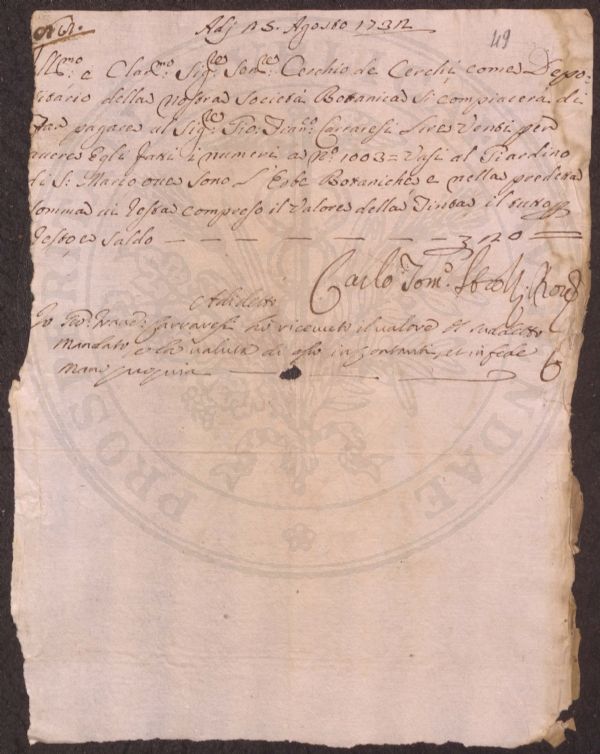 Adj 25. Agosto 1732
49
Ill:mo e Clar:mo Sig:re Sen:re Cerchio de Cerchi come Depo-
sitario della nostra Società Botanica si compiacerà di
far pagare al Sig:re Gio: Fran:co Carraresi Lire Venti per
avere Egli fatti i numeri a n:o 1003= Vasi al Giardino
di S: Marco ove sono l'Erbe Botaniche e nella predetta
somma di resta compreso il Valore della Tinta e il tutto
resto e saldo — — — — — — 20
Carlo Tom:o
Adi detto
Io Gio: Fran:co Carraresi ho ricevuto il valore del sudetto
mandato e la valuta di esso in contanti, et in fede
mano propria
PROS
NDAE